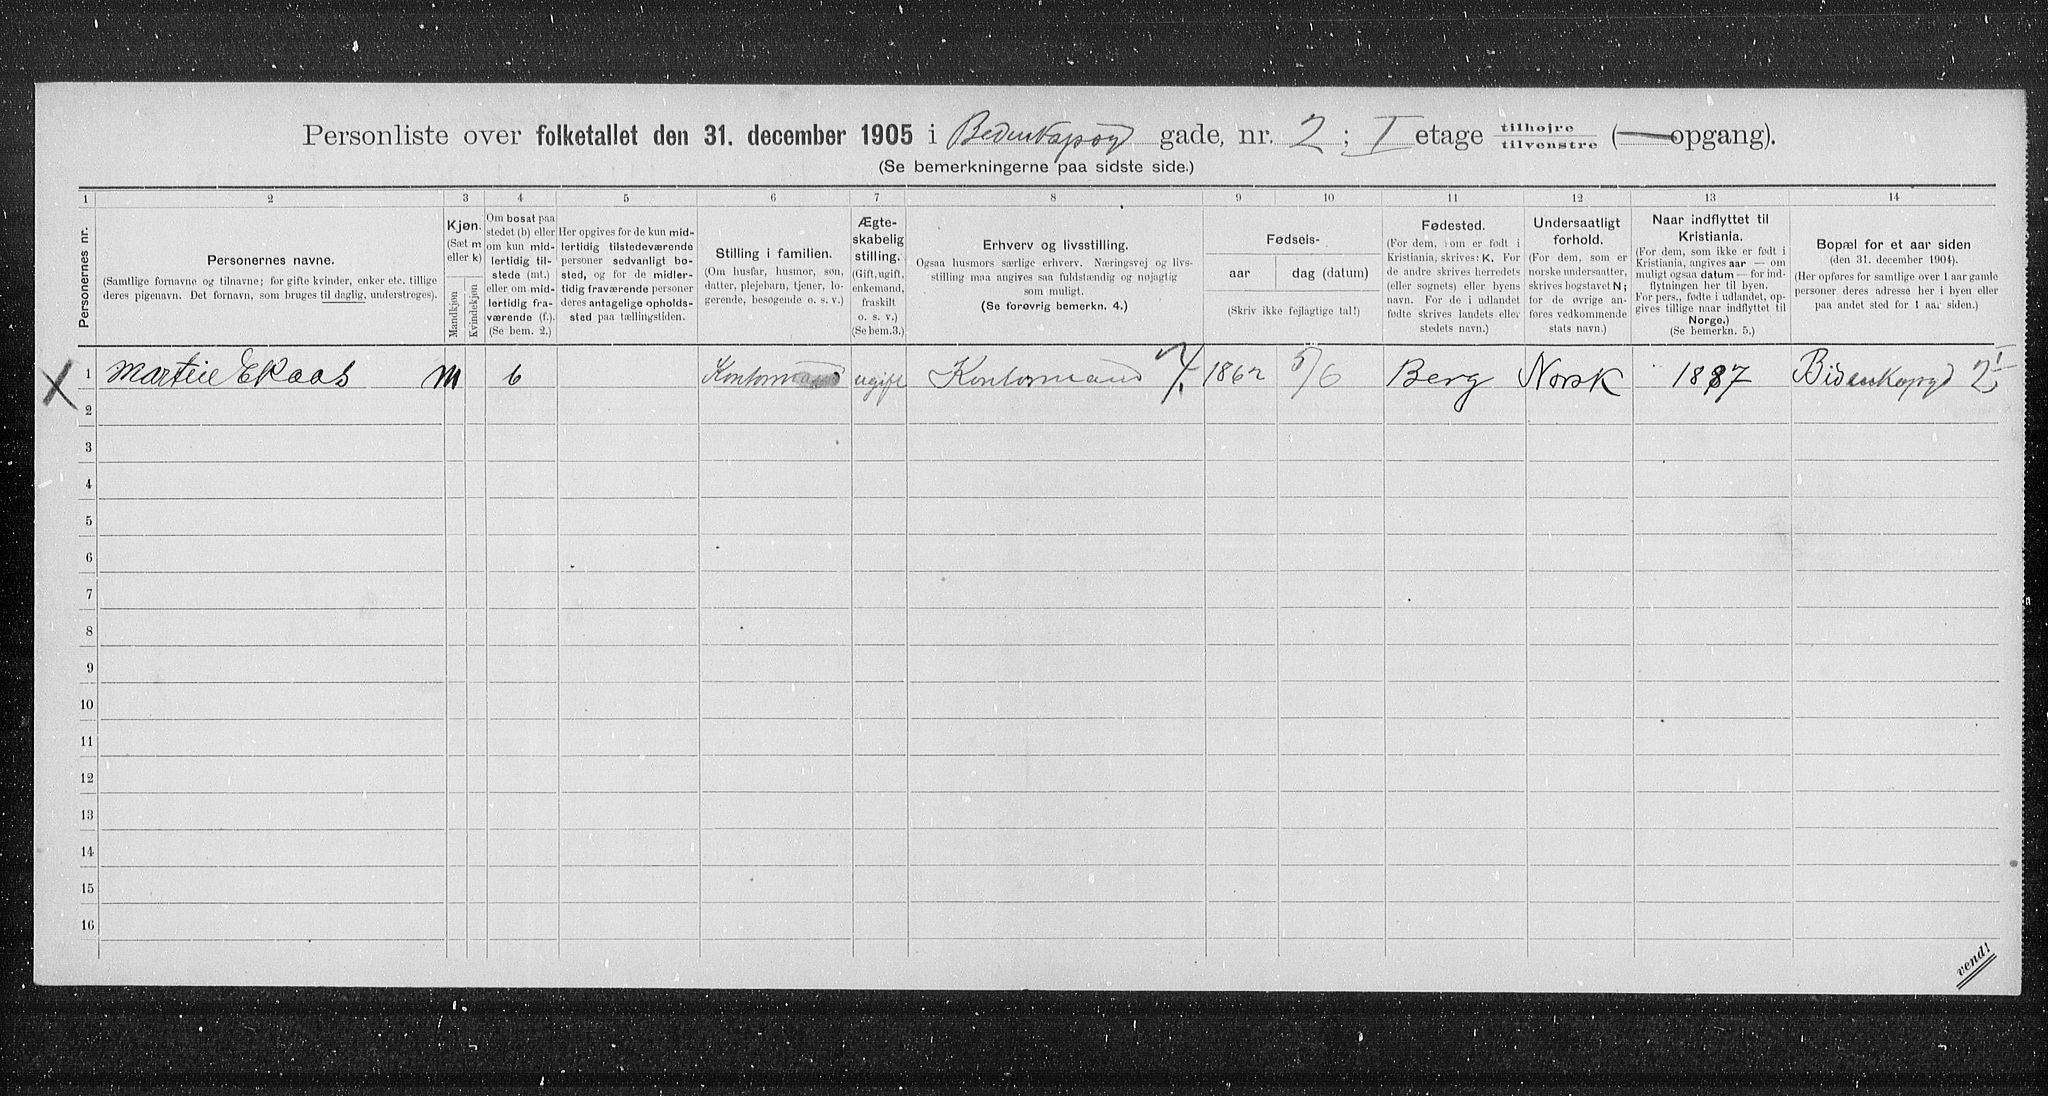 Personliste over folketallet den 31. december 1905 i Bedenkapsg gade, nr. 2; I etage tilhøjre tilvenstre (— opgang).
(Se bemerkningerne paa sidste side.)
1 2 3 4 5 6 7 8 9 10 11 12 13 14
Personernes nr.
Personernes navne.
(Samtlige fornavne og tilnavne; for gifte kvinder, enker etc. tillige deres pigenavn. Det fornavn, som bruges til daglig, understreges).
Kjøn.
(Sæt m eller k)
Mandkjøn
Kvindekjøn
Om bosat paa stedet (b) eller om kun midlertidig tilstede (mt.) eller om midlertidig fraværende (f.). (Se bem. 2.)
Her opgives for de kun midlertidig tilstedeværende personer sedvanligt bosted, og for de midlertidig fraværende personer deres antagelige opholdssted paa tællingstiden.
Stilling i familien.
(Om husfar, husmor, søn, datter, plejebarn, tjener, logerende, besøgende o. s. v.)
Ægteskabelig stilling.
(Gift, ugift, enkemand, fraskilt o. s. v.)
(Se bem. 3.)
Erhverv og livsstilling.
Ogsaa husmors særlige erhverv. Næringsvej og livsstilling maa angives saa fuldstændig og nøjagtig som muligt.
(Se forøvrig bemerkn. 4.)
Fødsels-
aar
dag (datum)
(Skriv ikke fejlagtige tal!)
Fødested.
(For dem, som er født i Kristiania, skrives: K. For de andre skrives herredets (eller sognets) eller byens navn. For de i udlandet fødte skrives landets eller stedets navn.)
Undersaatligt forhold.
(For dem, som er norske undersaatter, skrives bogstavet N; for de øvrige anføres vedkommende stats navn.)
Naar indflyttet til Kristiania.
(For dem, som ikke er født i Kristiania, angives aar — om muligt ogsaa datum — for indflytningen her til byen. For pers., fødte i udlandet, opgives tillige naar indflyttet til Norge.)
(Se bemerkn. 5.)
Bopæl for et aar siden
(den 31. december 1904).
(Her opføres for samtlige over 1 aar gamle personer deres adresse her i byen eller paa andet sted for 1 aar siden.)
X 1 Martin Ekaas m b Kontormand ugift Kontormand 1862 5/6 Berg Norsk 1887 Bidenkapsg 2 I
2
3
4
5
6
7
8
9
10
11
12
13
14
15
16
vend!